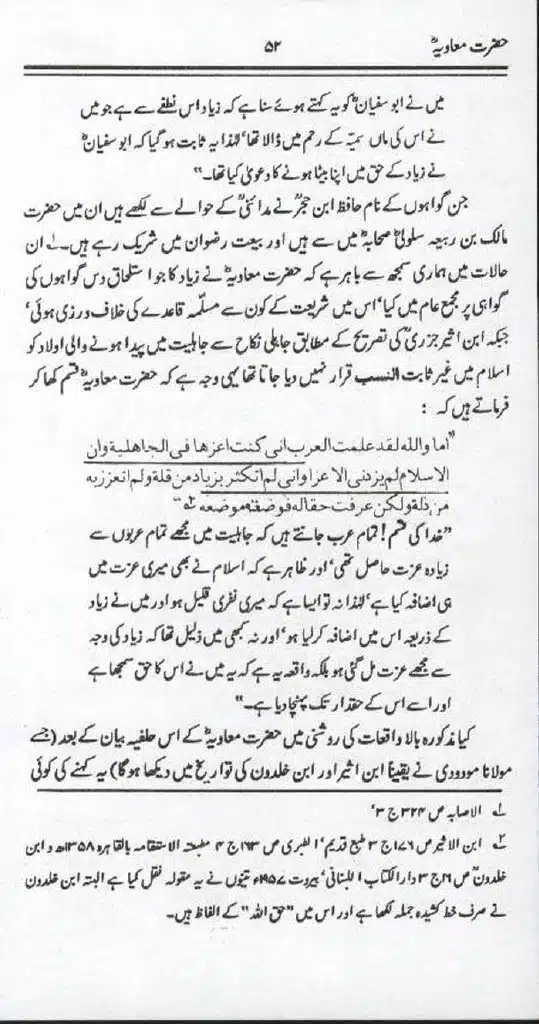 حضرت معاویہؓ ۵۲
میں نے ابو سفیانؓ کو یہ کہتے ہوئے سنا ہے کہ زیاد اس نطفے سے ہے جو میں
نے اس کی ماں سمیّہ کے رحم میں ڈالا تھا، لہٰذا یہ ثابت ہو گیا کہ ابو سفیانؓ
نے زیاد کے حق میں اپنا بیٹا ہونے کا دعویٰ کیا تھا۔"
جن گواہوں کے نام حافظ ابن حجرؒ نے مدائنیؒ کے حوالے سے لکھے ہیں ان میں حضرت
مالک بن ربیعہ سلولیؓ صحابہؓ میں سے ہیں اور بیعت رضوان میں شریک رہے ہیں۔ ۱؎ ان
حالات میں ہماری سمجھ سے باہر ہے کہ حضرت معاویہؓ نے زیاد کا جو استلحاق دس گواہوں کی
گواہی پر مجمع عام میں کیا، اس میں شریعت کے کون سے مسلّمہ قاعدے کی خلاف ورزی ہوئی،
جبکہ ابن اثیر جزریؒ کی تصریح کے مطابق جاہلی نکاح سے جاہلیت میں پیدا ہونے والی اولاد کو
اسلام میں غیر ثابت النسب قرار نہیں دیا جاتا تھا یہی وجہ ہے کہ حضرت معاویہؓ قسم کھا کر
فرماتے ہیں کہ :
"اما والله لقد علمت العرب انی كنت اعزها فی الجاهلية وان
الاسلام لم يزدنی الا عزا وانی لم اتكثر بزياد من قلة ولم اتعزز به
من ذلة ولكن عرفت حقا له فوضعته موضعه ۲؎"
"خدا کی قسم! تمام عرب جانتے ہیں کہ جاہلیت میں مجھے تمام عربوں سے
زیادہ عزت حاصل تھی، اور ظاہر ہے کہ اسلام نے بھی میری عزت میں
ہی اضافہ کیا ہے، لہٰذا نہ تو ایسا ہے کہ میری نفری قلیل ہو اور میں نے زیاد
کے ذریعہ اس میں اضافہ کر لیا ہو، اور نہ کبھی میں ذلیل تھا کہ زیاد کی وجہ
سے مجھے عزت مل گئی ہو بلکہ واقعہ یہ ہے کہ یہ میں نے اس کا حق سمجھا ہے
اور اسے اس کے حقدار تک پہنچا دیا ہے۔"
کیا مذکورہ بالا واقعات کی روشنی میں حضرت معاویہؓ کے اس حلفیہ بیان کے بعد (جسے
مولانا مودودی نے یقیناً ابن اثیر اور ابن خلدون کی تواریخ میں دیکھا ہوگا) یہ کہنے کی کوئی
۱؎ الاصابہ ص ۳۲۴ ج ۳،
۲؎ ابن الاثیر ص ۱۷۶ ج ۳ طبع قدیم، الطبری ص ۱۶۳ ج ۴ مطبعۃ الاستقامہ بالقاہرہ ۱۳۵۸ھ و ابن
خلدونؒ ص ۱۶ ج ۳ دار الکتاب اللبنانی، بیروت ۱۹۵۷ء تینوں نے یہ مقولہ نقل کیا ہے البتہ ابن خلدون
نے صرف خط کشیدہ جملہ لکھا ہے اور اس میں "حق اللہ" کے الفاظ ہیں۔